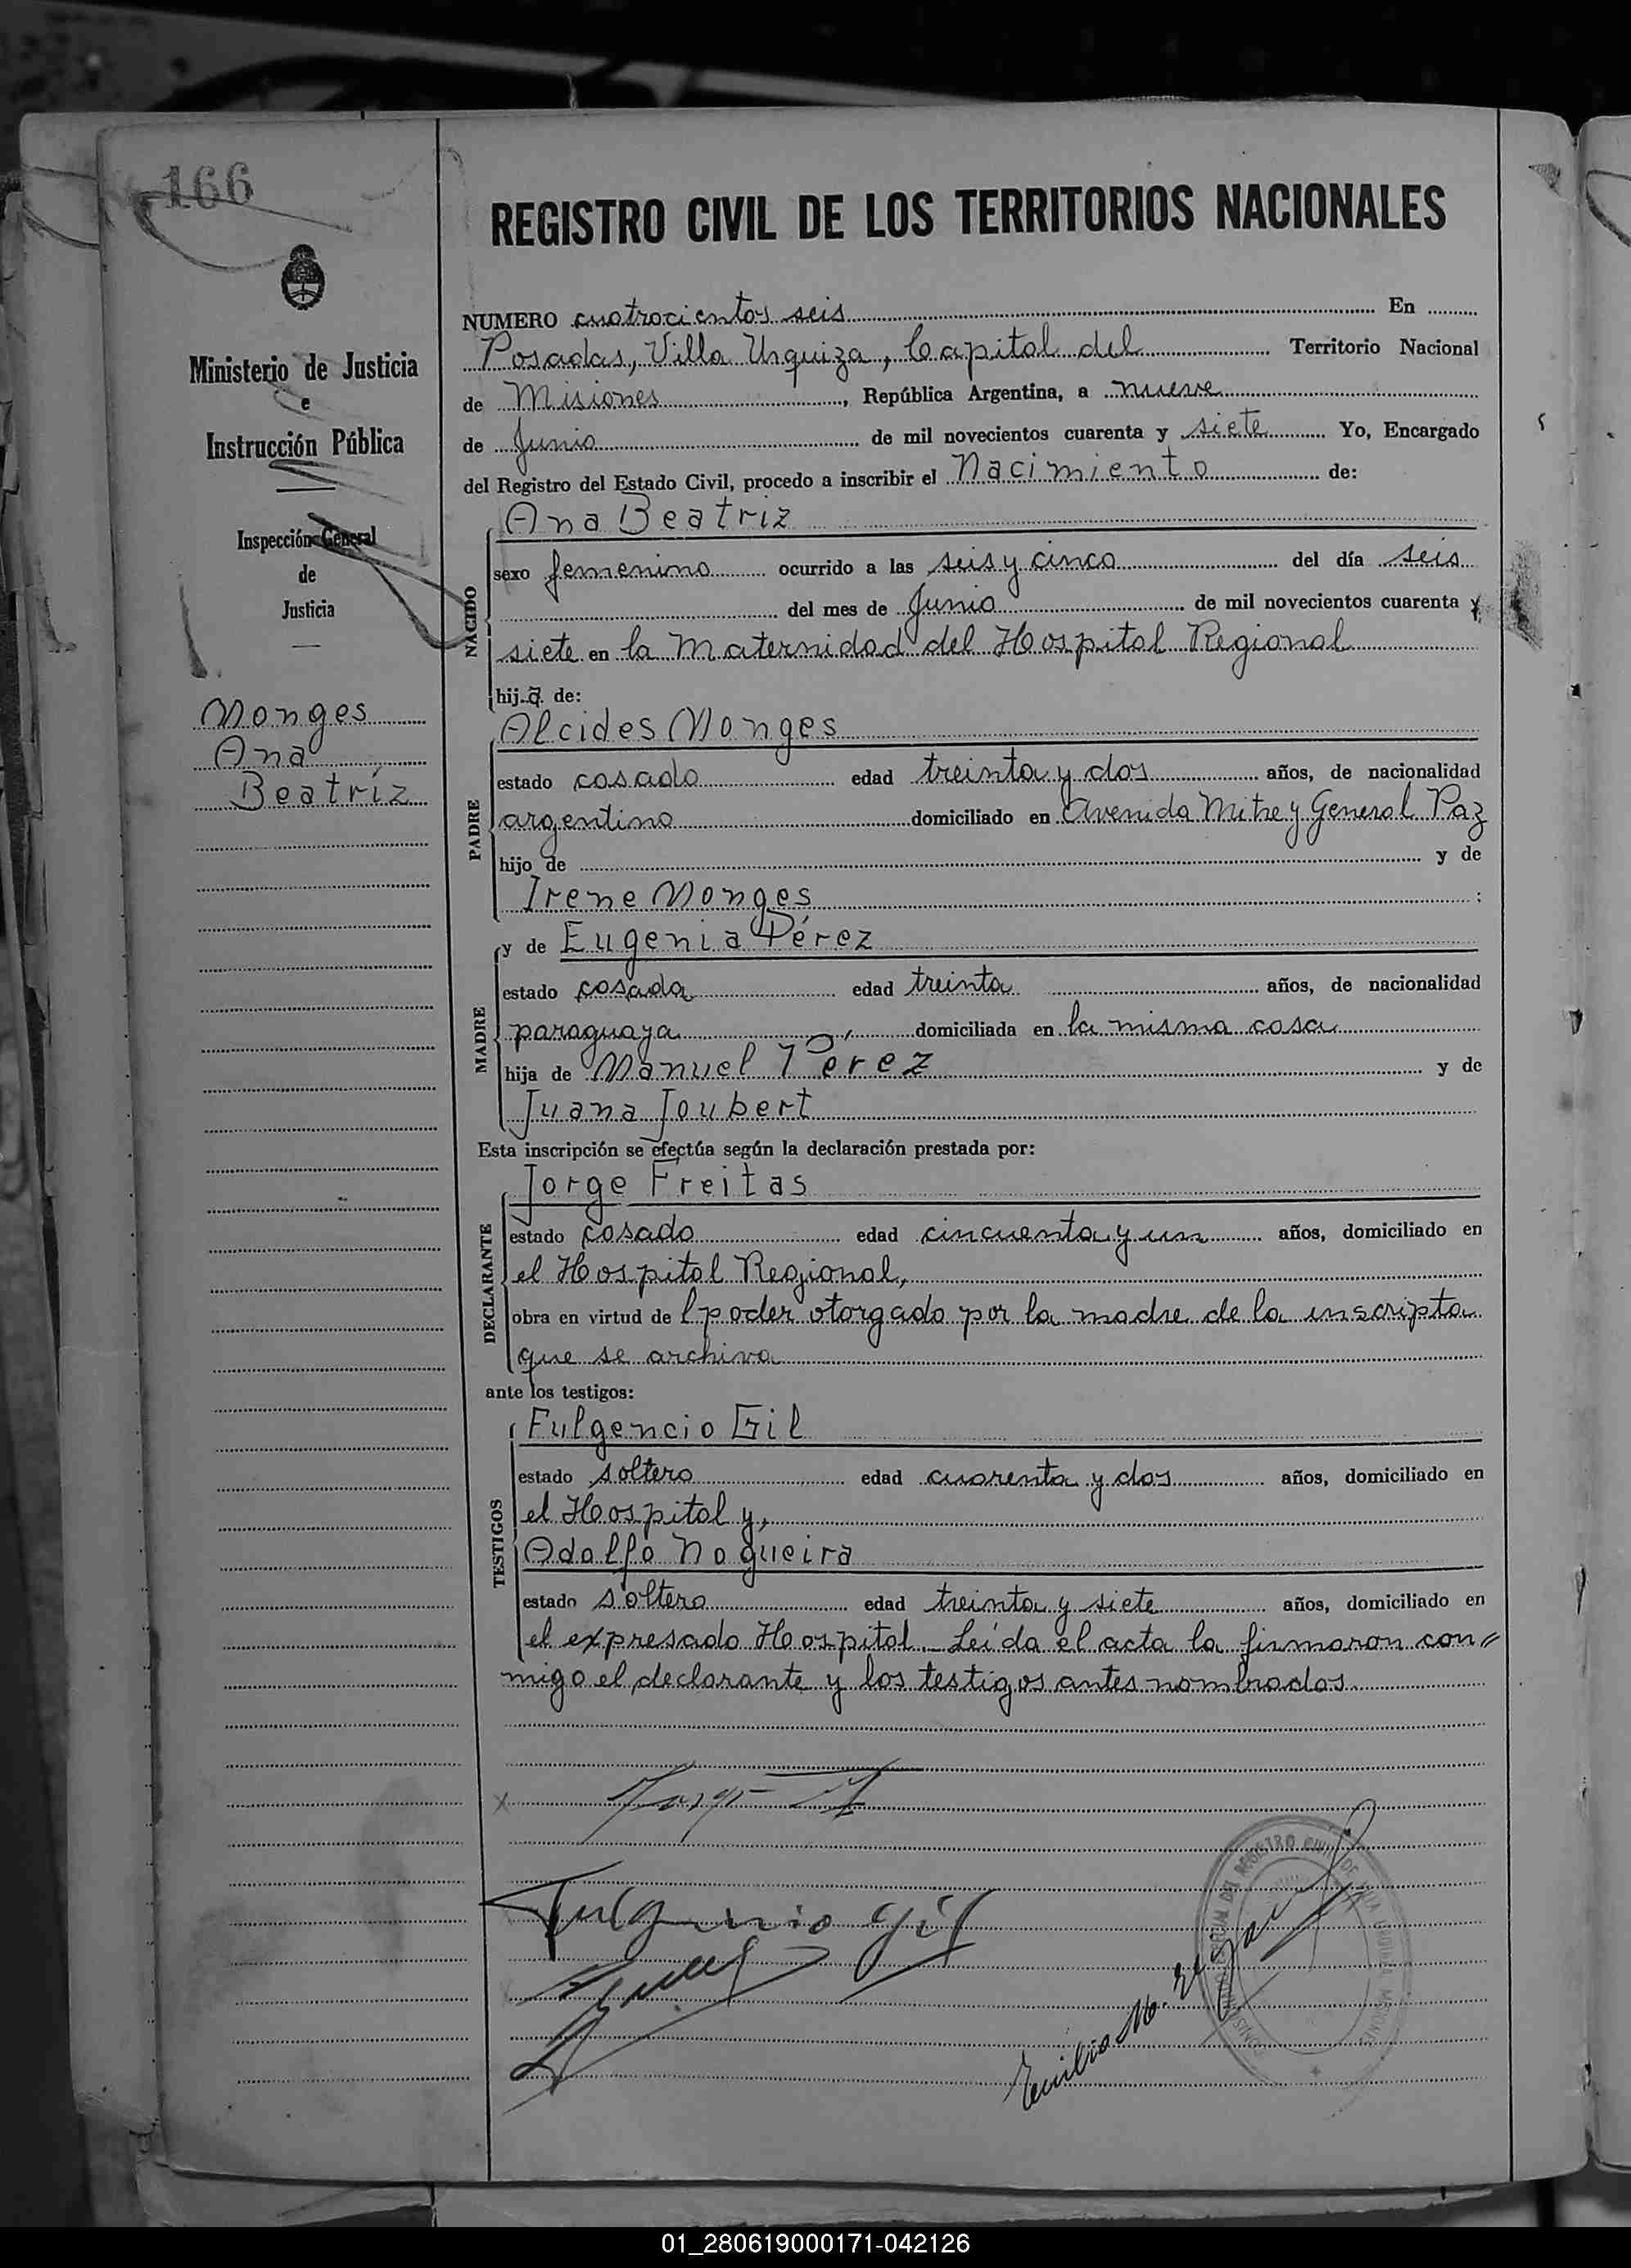 166
REGISTRO CIVIL DE LOS TERRITORIOS NACIONALES
Ministerio de Justicia
e
Instrucción Pública
Inspección General
de
Justicia
Monges
Ana
Beatríz
NUMERO cuatrocientos seis En
Posadas, Villa Urquiza, Capital del Territorio Nacional
de Misiones, República Argentina, a nueve
de Junio de mil novecientos cuarenta y siete Yo, Encargado
del Registro del Estado Civil, procedo a inscribir el Nacimiento de:
NACIDO
Ana Beatriz
sexo femenino ocurrido a las seis y cinco del día seis
del mes de Junio de mil novecientos cuarenta y
siete en la Maternidad del Hospital Regional
hija de:
PADRE
Alcides Monges
estado casado edad treinta y dos años, de nacionalidad
argentino domiciliado en Avenida Mitre y General Paz
hijo de y de
Irene Monges :
MADRE
y de Eugenia Pérez
estado casada edad treinta años, de nacionalidad
paraguaya domiciliada en la misma casa
hija de Manuel Pérez y de
Juana Joubert
Esta inscripción se efectúa según la declaración prestada por:
DECLARANTE
Jorge Freitas
estado casado edad cincuenta y un años, domiciliado en
el Hospital Regional,
obra en virtud del poder otorgado por la madre de la inscripta
que se archiva
ante los testigos:
TESTIGOS
Fulgencio Gil
estado soltero edad cuarenta y dos años, domiciliado en
el Hospital y,
Adolfo Nogueira
estado soltero edad treinta y siete años, domiciliado en
el expresado Hospital. Leída el acta la firmaron con=
migo el declarante y los testigos antes nombrados
Fulgencio Gil
Emilio M.
REGISTRO CIVIL DE VILLA URQUIZA MISIONES
01_280619000171-042126